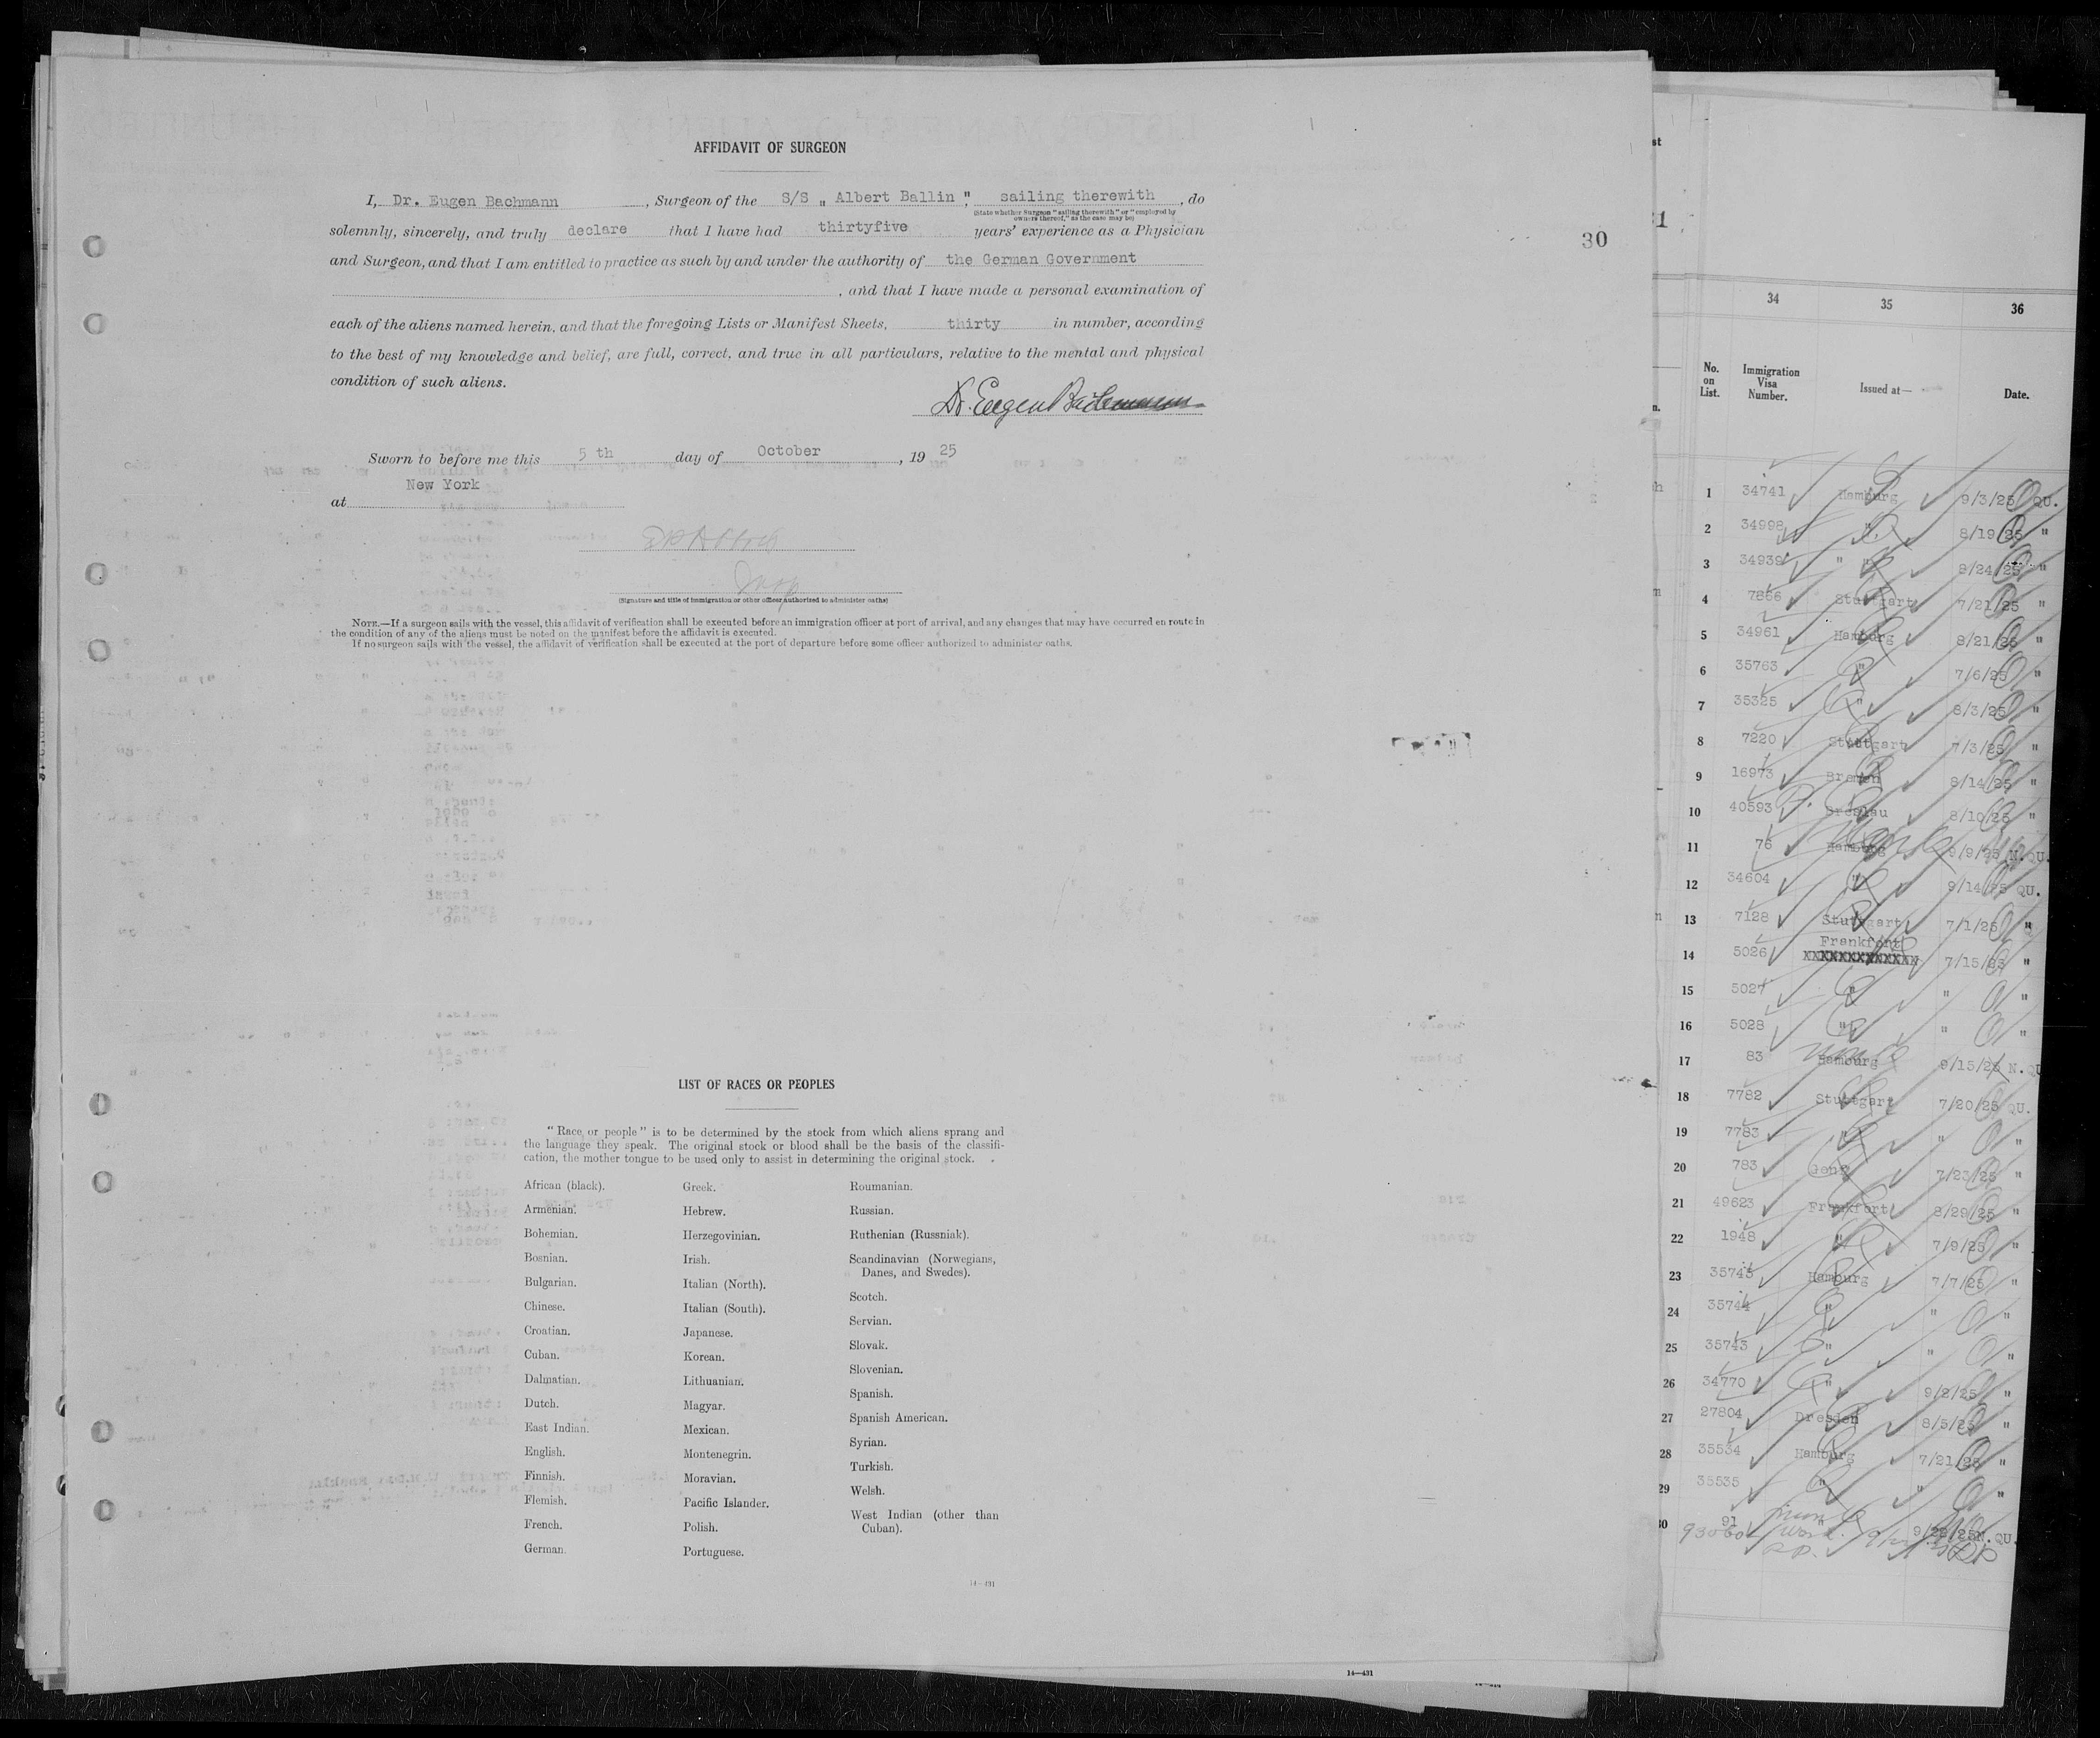 AFFIDAVIT OF SURGEON
I, Dr. Eugen Bachmann, Surgeon of the S/S „ Albert Ballin ", sailing therewith, do
(State whether Surgeon "sailing therewith" or "employed by
owners thereof," as the case may be)
solemnly, sincerely, and truly declare that I have had thirtyfive years' experience as a Physician
30
and Surgeon, and that I am entitled to practice as such by and under the authority of the German Government
, and that I have made a personal examination of
each of the aliens named herein, and that the foregoing Lists or Manifest Sheets, thirty in number, according
to the best of my knowledge and belief, are full, correct, and true in all particulars, relative to the mental and physical
condition of such aliens.
Dr. Eugen Bachmann
Sworn to before me this 5 th day of October, 19 25
at New York
(Signature and title of immigration or other officer authorized to administer oaths)
NOTE.—If a surgeon sails with the vessel, this affidavit of verification shall be executed before an immigration officer at port of arrival, and any changes that may have occurred en route in
the condition of any of the aliens must be noted on the manifest before the affidavit is executed.
If no surgeon sails with the vessel, the affidavit of verification shall be executed at the port of departure before some officer authorized to administer oaths.
LIST OF RACES OR PEOPLES
"Race or people" is to be determined by the stock from which aliens sprang and
the language they speak. The original stock or blood shall be the basis of the classifi-
cation, the mother tongue to be used only to assist in determining the original stock.
African (black).
Armenian.
Bohemian.
Bosnian.
Bulgarian.
Chinese.
Croatian.
Cuban.
Dalmatian.
Dutch.
East Indian.
English.
Finnish.
Flemish.
French.
German.
Greek.
Hebrew.
Herzegovinian.
Irish.
Italian (North).
Italian (South).
Japanese.
Korean.
Lithuanian.
Magyar.
Mexican.
Montenegrin.
Moravian.
Pacific Islander.
Polish.
Portuguese.
Roumanian.
Russian.
Ruthenian (Russniak).
Scandinavian (Norwegians,
Danes, and Swedes).
Scotch.
Servian.
Slovak.
Slovenian.
Spanish.
Spanish American.
Syrian.
Turkish.
Welsh.
West Indian (other than
Cuban).
14—431
14—431
34 35 36
No. on List. Immigration Visa Number. Issued at— Date.
1 34741 Hamburg 9/3/25 QU.
2 34998 " 8/19/25 "
3 34939 " " 8/24/25 "
4 7866 Stuttgart 7/21/25 "
5 34961 Hamburg 8/21/25 "
6 35763 " 7/6/25 "
7 35325 " 8/3/25 "
8 7220 Stuttgart 7/3/25 "
9 16973 Bremen 8/14/25 "
10 40593 Breslau 8/10/25 "
11 76 Hamburg 9/9/25 N.QU.
12 34604 " 9/14/25 QU.
13 7128 Stuttgart 7/1/25 "
14 5026 Frankfort 7/15/25 "
XXXXXXXXXXXXX
15 5027 " " "
16 5028 " " "
17 83 Hamburg 9/15/25 N.QU
18 7782 Stuttgart 7/20/25 QU.
19 7783 " " "
20 783 7/23/25 "
21 49623 Frankfort 8/29/25 "
22 1948 " 7/9/25 "
23 35745 Hamburg 7/7/25 "
24 35744 " " "
25 35743 " " "
26 34770 " 9/2/25 "
27 27804 Dresden 8/5/25 "
28 35534 Hamburg 7/21/25 "
29 35535 " " "
30 91 " N.QU.